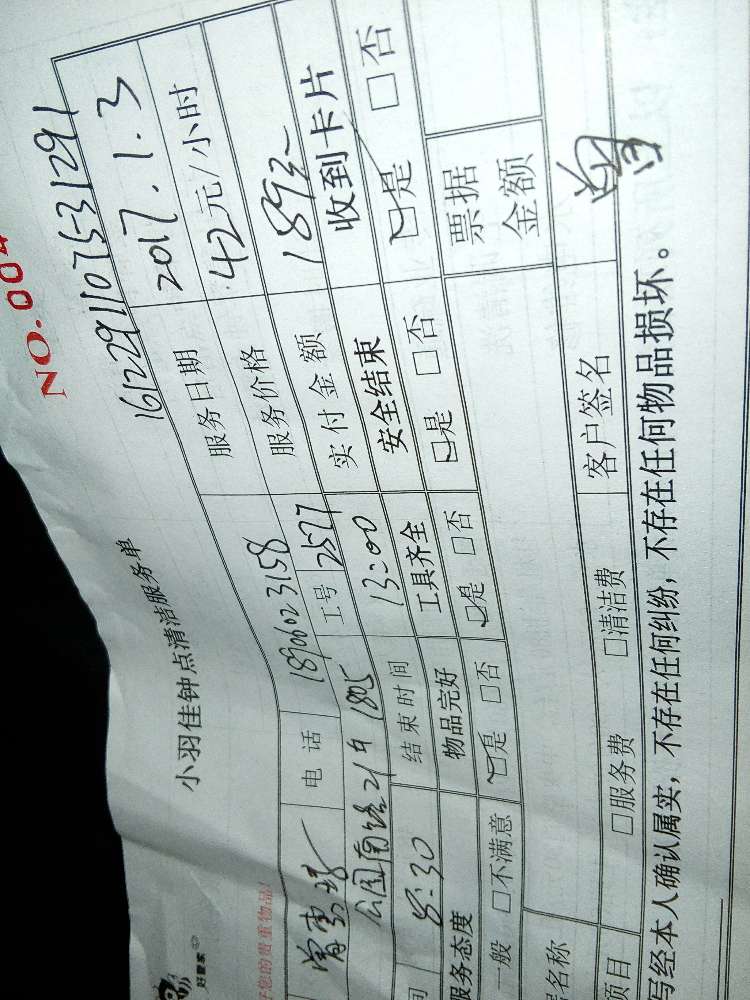 NO.004
1612291107531291
小羽佳钟点清洁服务单
好您的贵重物品!
好慷家
电 话 18906023158 服务日期 2017.1.3
公园南路21号1805 工号 2577 服务价格 42元/小时
间 8:30 结束时间 13:00 实付金额 189元
服务态度 物品完好 工具齐全 安全结束 收到卡片
一般 □不满意 □是 □否 □是 □否 □是 □否 □是 □否
票据金额
名称
项目 □服务费 □清洁费 客户签名
写经本人确认属实,不存在任何纠纷,不存在任何物品损坏。